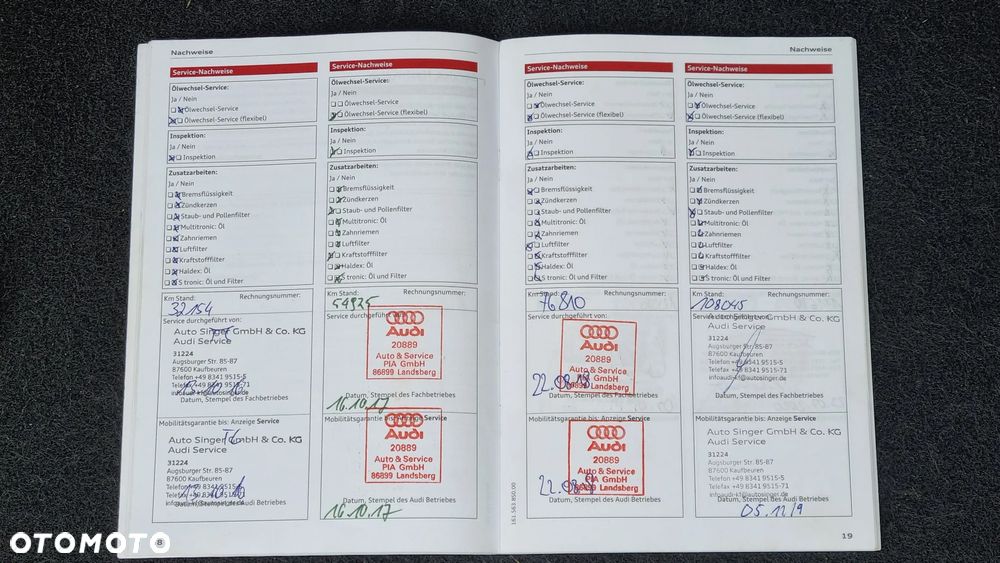 Nachweise
Service-Nachweise
Ölwechsel-Service:
Ja / Nein
Ölwechsel-Service
Ölwechsel-Service (flexibel)
Inspektion:
Ja / Nein
Inspektion
Zusatzarbeiten:
Ja / Nein
Bremsflüssigkeit
Zündkerzen
Staub- und Pollenfilter
Multitronic: Öl
Zahnriemen
Luftfilter
Kraftstofffilter
Haldex: Öl
S tronic: Öl und Filter
Km Stand:
Rechnungsnummer:
32154
Service durchgeführt von:
Auto Singer GmbH & Co. KG
Audi Service
31224
Augsburger Str. 85-87
87600 Kaufbeuren
Telefon +49 8341 9515-5
Telefax +49 8341 9515-71
infoaudi-kf@autosinger.de
Datum, Stempel des Fachbetriebes
Mobilitätsgarantie bis: Anzeige Service
Auto Singer GmbH & Co. KG
Audi Service
31224
Augsburger Str. 85-87
87600 Kaufbeuren
Telefon +49 8341 9515-5
Telefax +49 8341 9515-71
Datum, Stempel des Audi Betriebes
Service-Nachweise
Ölwechsel-Service:
Ja / Nein
Ölwechsel-Service
Ölwechsel-Service (flexibel)
Inspektion:
Ja / Nein
Inspektion
Zusatzarbeiten:
Ja / Nein
Bremsflüssigkeit
Zündkerzen
Staub- und Pollenfilter
Multitronic: Öl
Zahnriemen
Luftfilter
Kraftstofffilter
Haldex: Öl
S tronic: Öl und Filter
Km Stand:
Rechnungsnummer:
54925
Service durchgeführt von:
Audi
20889
Auto & Service
PIA GmbH
86899 Landsberg
Datum, Stempel des Fachbetriebes
16.10.17
Mobilitätsgarantie bis: Anzeige Service
Audi
20889
Auto & Service
PIA GmbH
86899 Landsberg
Datum, Stempel des Audi Betriebes
16.10.17
8
Nachweise
Service-Nachweise
Ölwechsel-Service:
Ja / Nein
Ölwechsel-Service
Ölwechsel-Service (flexibel)
Inspektion:
Ja / Nein
Inspektion
Zusatzarbeiten:
Ja / Nein
Bremsflüssigkeit
Zündkerzen
Staub- und Pollenfilter
Multitronic: Öl
Zahnriemen
Luftfilter
Kraftstofffilter
Haldex: Öl
S tronic: Öl und Filter
Km Stand:
Rechnungsnummer:
76810
Service durchgeführt von:
Audi
20889
Auto & Service
PIA GmbH
86899 Landsberg
22.08.18
Datum, Stempel des Fachbetriebes
Mobilitätsgarantie bis: Anzeige Service
Audi
20889
Auto & Service
PIA GmbH
86899 Landsberg
22.08.18
Datum, Stempel des Audi Betriebes
161.563.850.00
Service-Nachweise
Ölwechsel-Service:
Ja / Nein
Ölwechsel-Service
Ölwechsel-Service (flexibel)
Inspektion:
Ja / Nein
Inspektion
Zusatzarbeiten:
Ja / Nein
Bremsflüssigkeit
Zündkerzen
Staub- und Pollenfilter
Multitronic: Öl
Zahnriemen
Luftfilter
Kraftstofffilter
Haldex: Öl
S tronic: Öl und Filter
Km Stand:
Rechnungsnummer:
108045
Service durchgeführt von:
Auto Singer GmbH & Co. KG
Audi Service
31224
Augsburger Str. 85-87
87600 Kaufbeuren
Telefon +49 8341 9515-5
Telefax +49 8341 9515-71
infoaudi-kf@autosinger.de
Datum, Stempel des Fachbetriebes
Mobilitätsgarantie bis: Anzeige Service
Auto Singer GmbH & Co. KG
Audi Service
31224
Augsburger Str. 85-87
87600 Kaufbeuren
Telefon +49 8341 9515-5
Telefax +49 8341 9515-71
infoaudi-kf@autosinger.de
Datum, Stempel des Audi Betriebes
05.12/9
19
OTOMOTO